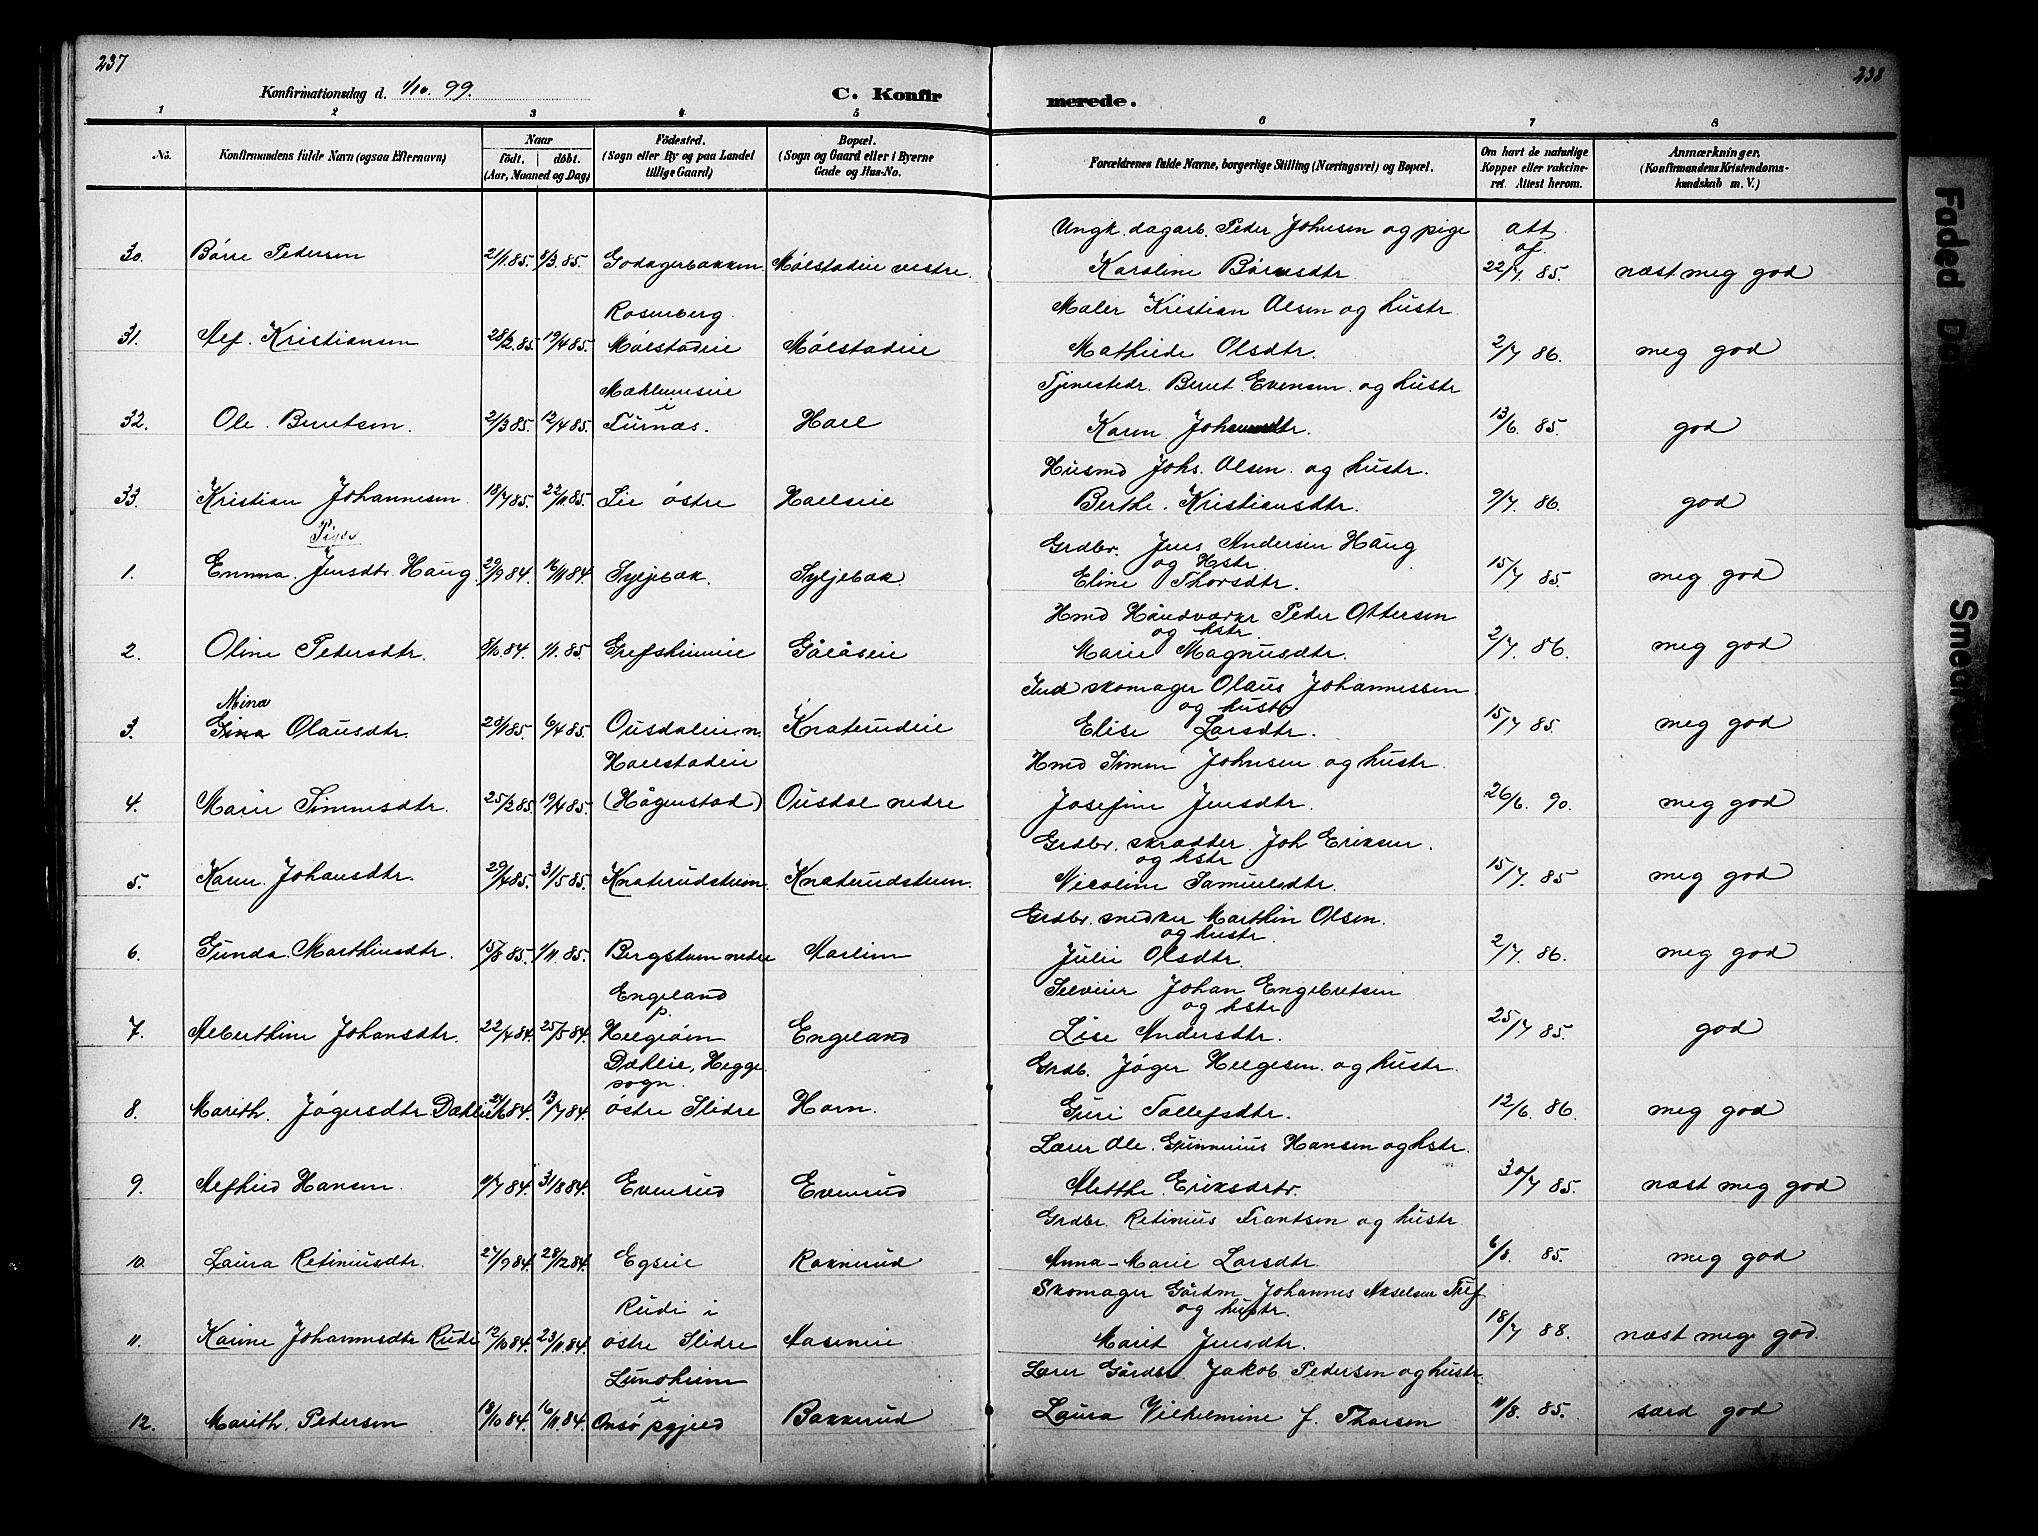 237
238
Konfirmationsdag d. 1/10. 99.
C. Konfir
merede.
1 2 3 4 5 6 7 8
No.
Konfirmandens fulde Navn (ogsaa Efternavn)
Naar
født. døbt.
(Aar, Maaned og Dag)
Fødested.
(Sogn eller By og paa Landet
tillige Gaard)
Bopæl.
(Sogn og Gaard eller i Byerne
Gade og Hus-No.
Forældrenes fulde Navne, borgerlige Stilling (Næringsvei) og Bopæl.
Om havt de naturlige
Kopper eller vakcine-
ret. Attest herom.
Anmærkninger.
(Konfirmandens Kristendoms-
kundskab m. V.)
Ungk. dagarb. Peder Johnsen og pige att
af
30. Børre Pedersen 2/1.85. 8/3.85. Godagerbakken. Mølstadeie vestre. Karoline Børresdtr 22/7. 85. næst meg god
Rosenberg. Maler Kristian Olsen og hustr
31. Alf. Kristiansen 28/2.85. 19/4 85. Mølstadeie Mølstadeie Mathilde Olsdtr. 2/7 86. meg god
Mæhlumseie Tjenestedr. Bernt Evensen og hustr
i
32. Ole. Berntsen. 2/3 85. 12/4 85. Furnæs. Hoel Karen 13/6. 85. god
Husmd Johs. Olsen. og hustr.
33. Kristian Johannesen 18/7 85. 22/11 85. Lie østre Hoelseie Berthe. Kristiansdtr. 9/7. 86. god
Piger
Grdbr. Jens Andersen Haug
og Hstr.
1. Emma. Jensdtr. Haug 29/9 84. 16/11 84. Syljebak. Syljebak. Eline Thorsdtr. 15/7 85. meg god
Hmd Håndværkr Peder Ottersen
og hstr.
2. Oline Pedersdtr. 8/10. 84. 1/1. 85. Grefsheimeie Gålåseie Marie Magnusdtr. 2/7. 86. meg god
Mina Ind skomager Olaus Johannessen
og hustr
3. Gina Olausdtr. 28/1 85. 6/4 85. Ousdaleie n. Knaterudeie Elise Larsdtr. 15/7 85. meg god
Hoelstadeie Hmd Simen Johnsen og hustr.
4. Marie Simensdtr. 25/2 85. 19/4 85. (Hågenstad) Ousdal nedre Josefine Jensdtr. 26/6. 90. meg god
Grdbr. skrædder. Joh Eriksen.
og hstr
5. Karen. Johansdtr. 29/4 85. 31/5 85. Knaterudstuen. Knaterudstuen. Nicoline Samuelsdtr. 15/7. 85 meg god
Grdbr. snedker Marthin Olsen.
og hustr.
6. Gunda. Marthinsdtr. 15/8 85. 1/11. 85. Bergstuen nedre Aarlien Julie Olsdtr. 2/7. 86. meg god
Engeland Selveier Johan Engebretsen
p. og hstr
7. Alberthine Johansdtr. 22/4 84. 25/5 84. Helgøien Engeland Lise Andersdtr. 25/7 85. god
Dæhlie, Hegge Grdb. Jøger Helgesen. og hustr.
sogn.
8. Marith. Jøgersdtr Dæhlie 24/6 84. 13/7 84. østre Slidre Horn. Guri Tollefsdtr. 12/6. 86. meg god
Lærer Ole. Gunnerius Hansen og hstr.
9. Alfhild Hansen. 11/7 84. 31/8 84. Evenrud Evenrud Mitthe. Eriksdatr. 30/7 85. næst meg god
Grdbr. Retinius Frantsen og hustr
10. Laura Retiniusdtr. 27/9 84. 28/12 84. Egseie Roknerud Anna-Marie Larsdtr 6/8. 85. meg god
Rudi i Skomager Gårdm. Johannes Axelsen
og hustr.
11. Karine Johannesdtr Rudi 12/10 84. 23/11 84. østre Slidre Aaseneie Marit Jensdtr. 18/7 88. næst meg. god.
Lundheim Lærer Gårdbr Jakob Pedersen og hustr.
i
12. Marith. Pedersen 18/10 84. 16/11 84. Onsø pgjeld Bakkerud Laura Vilhelmine f. Thorsen 11/8. 85. særd god
Faded